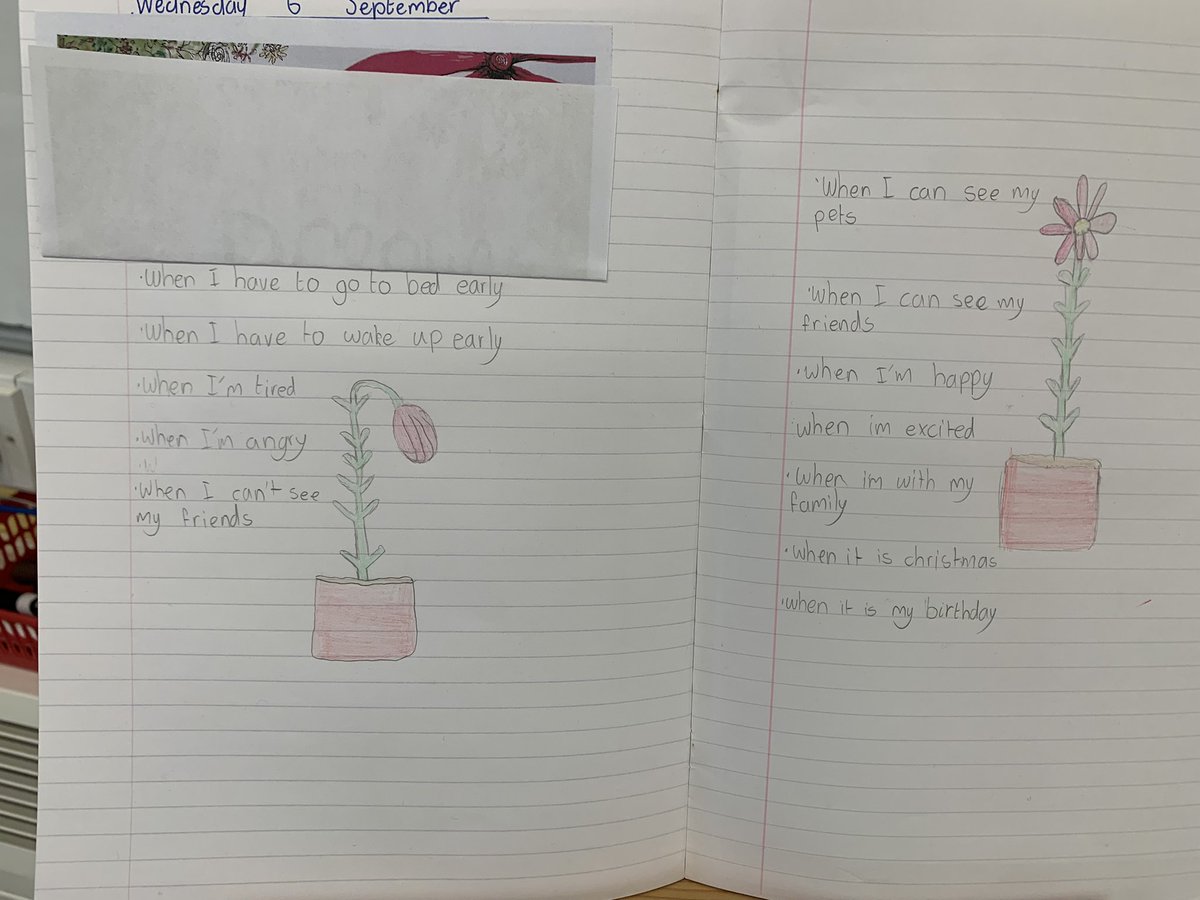 Wednesday 6 September
·When I have to go to bed early
·When I have to wake up early
·when I'm tired
·when I'm angry
·When I can't see
my friends
·When I can see my
pets
·When I can see my
friends
·when I'm happy
when im excited
·when im with my
family
·when it is christmas
·when it is my birthday